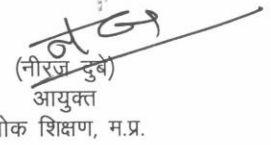 (नीरज दुबे)
आयुक्त
ोक शिक्षण, म.प्र.